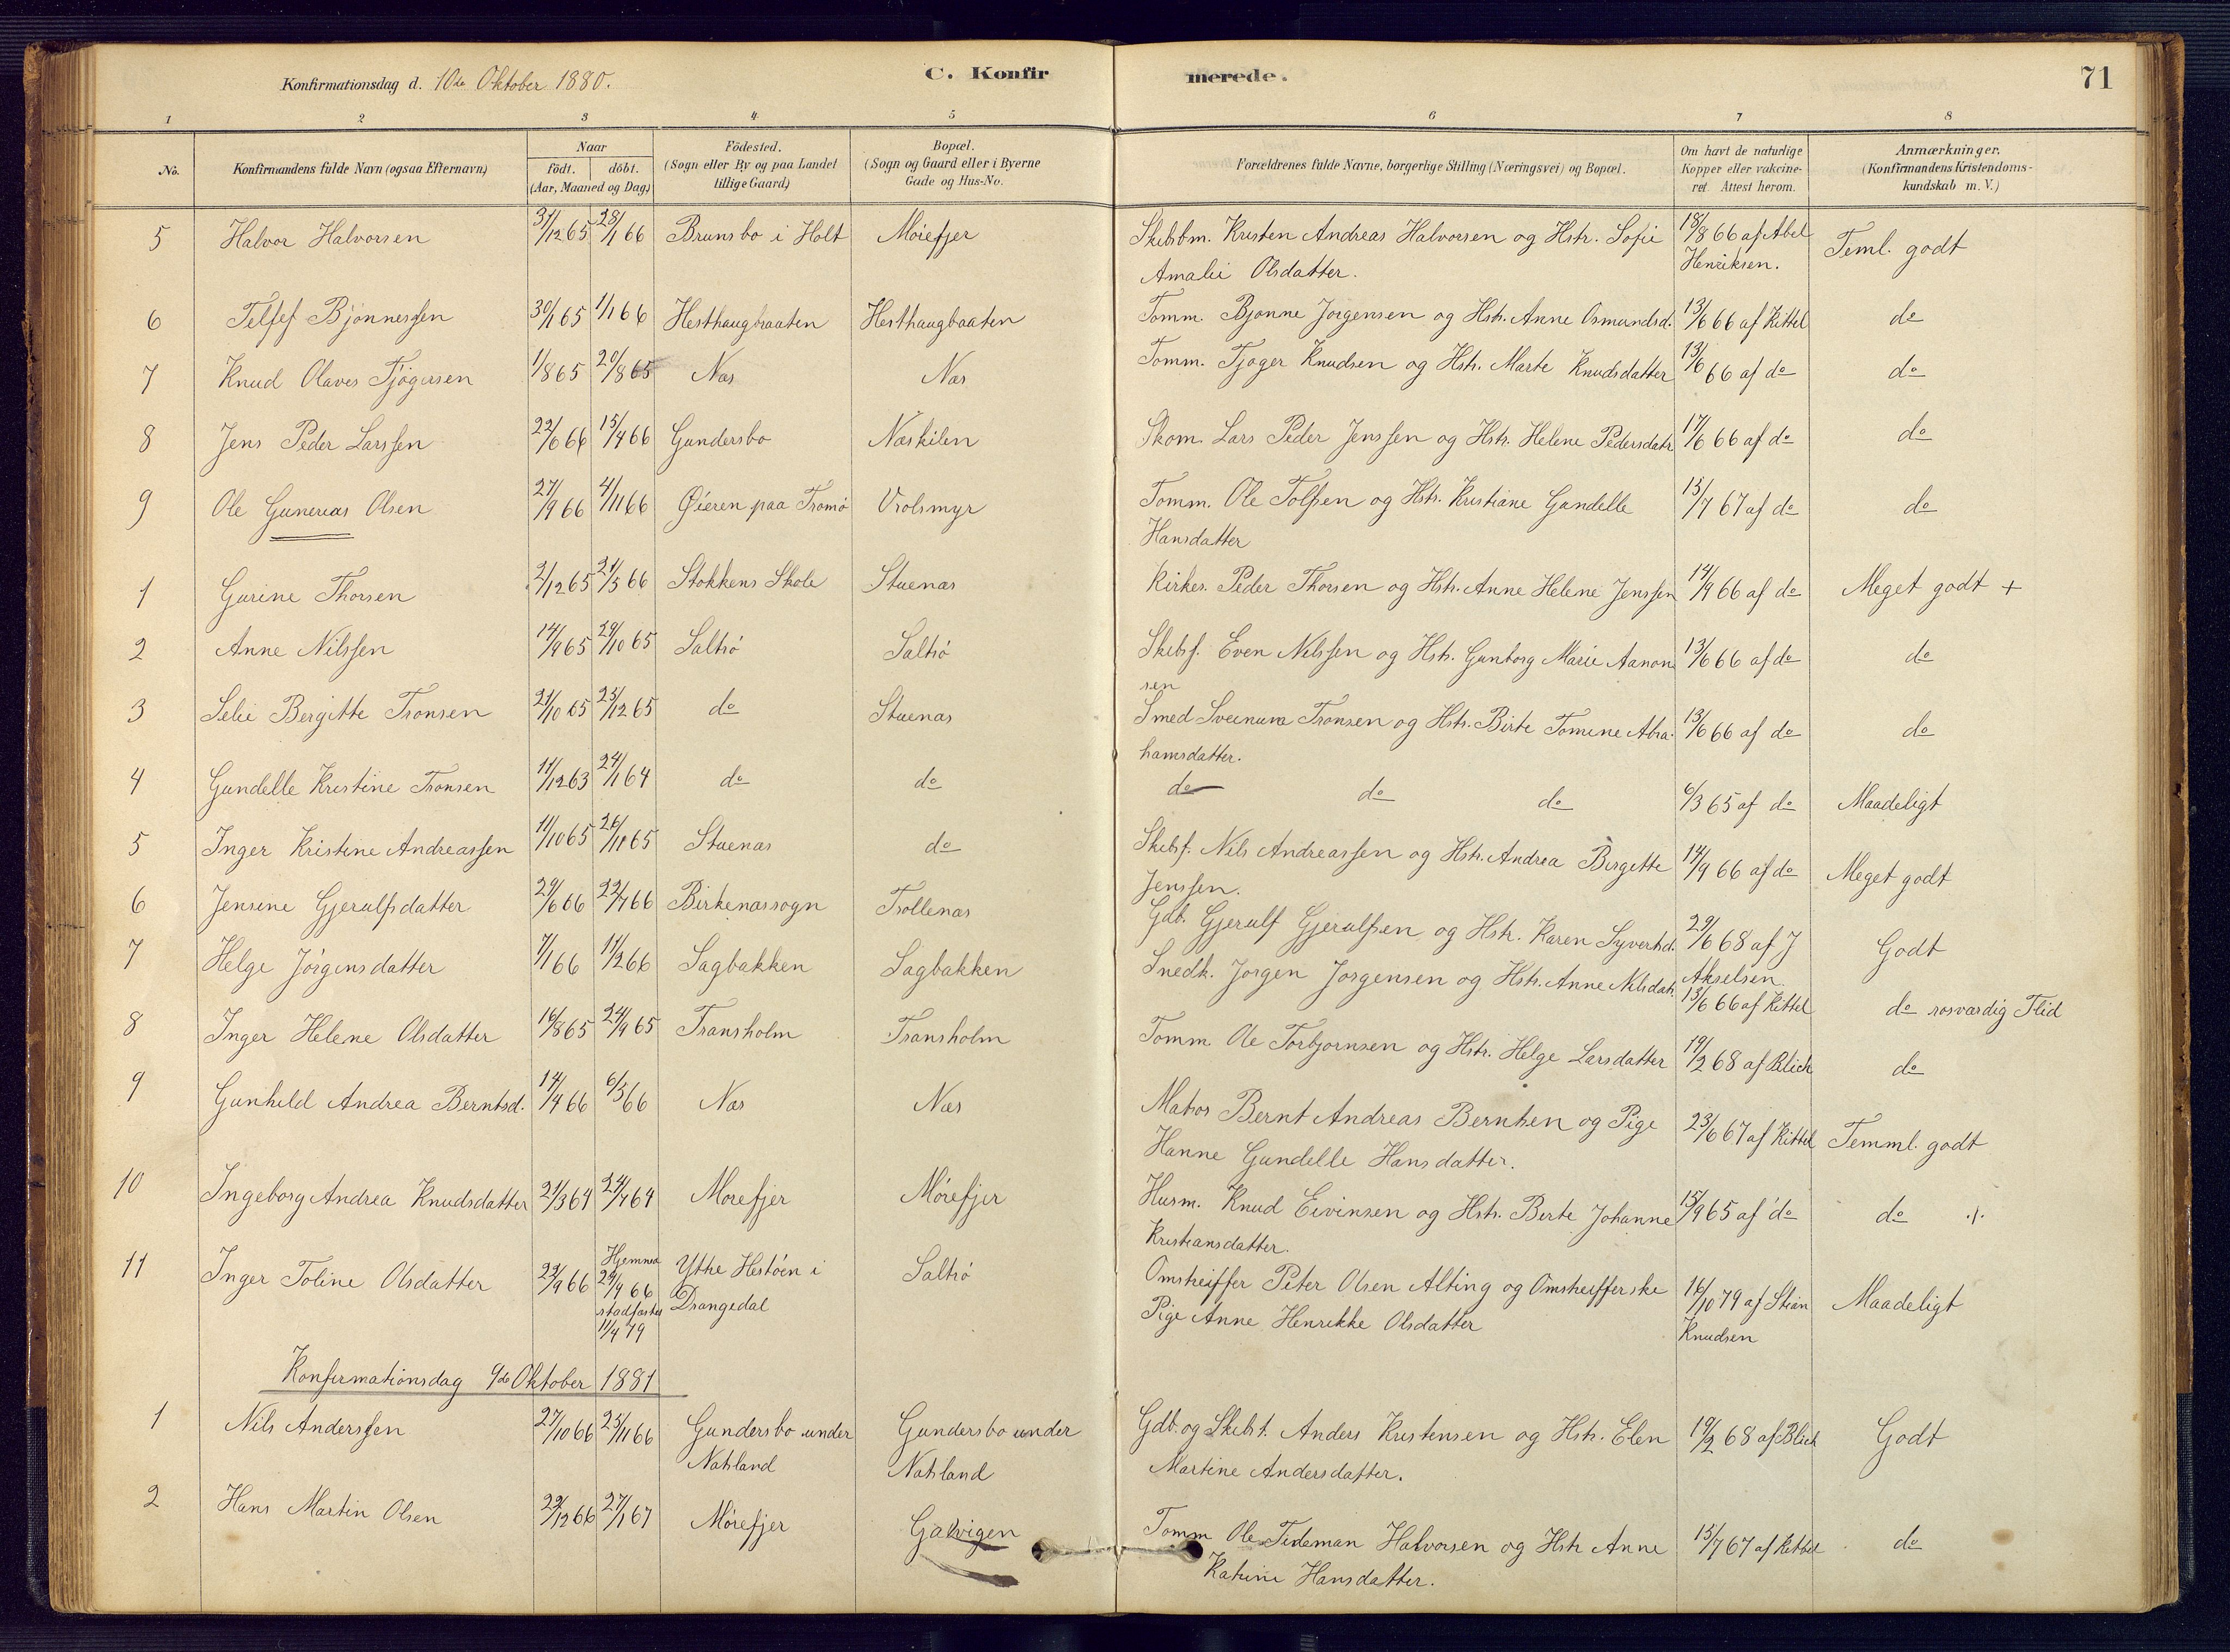 Konfirmationsdag d. 10de Oktober 1880.
C. Konfirmerede.
71
1 2 3 4 5 6 7 8
No.
Konfirmandens fulde Navn (ogsaa Efternavn)
Naar
födt. döbt.
(Aar, Maaned og Dag)
Födested.
(Sogn eller By og paa Landet
tillige Gaard)
Bopæl.
(Sogn og Gaard eller i Byerne
Gade og Hus-No.
Forældrenes fulde Navne, borgerlige Stilling (Næringsvei) og Bopæl.
Om havt de naturlige
Kopper eller vakcine-
ret. Attest herom.
Anmærkninger.
(Konfirmandens Kristendoms-
kundskab m. V.)
5 Halvor Halvorsen 31/12 65 28/1 66 Brunsbo i Holt Moiefjer Skibsbm. Kristen Andreas Halvorsen og Hstr. Sofie 18/8 66 af Abel
Amalie Olsdatter. Henriksen. Teml. godt
6 Telfef Bjönnessen 30/1 65 1/1 66 Hesthaugbraaten Hesthaugbaaten Tomm. Bjonne Jorgensen og Hstr. Anne Osmundsd. 13/6 66 af Kittel do
7 Knud Olaves Tjögersen 1/8 65 20/8 65 Næs Næs Tomm. Tjoger Knudsen og Hstr. Marte Knudsdatter 13/6 66 af do do
8 Jens Peder Larssen 22/6 66 15/4 66 Gundersbo Næskilen Skom. Lars Peder Jenssen og Hstr. Helene Pedersdatr 17/6 66 af do do
9 Ole Gunerius Olsen 27/9 66 4/11 66 Øieren paa Tromö Violsmyr Tomm. Ole Tolfsen og Hstr. Kristiane Gundelle 15/7 67 af do do
Hansdatter
1 Gurine Thorsen 2/12 65 21/5 66 Stokkens Skole Stuenæs Kirkes. Peder Thorsen og Hstr. Anne Helene Jenssen 14/9 66 af do Meget godt +
2 Anne Nilssen 14/9 65 29/10 65 Saltrö Saltrö Skibsf. Even Nilssen og Hstr. Gunborg Marie Aanon 13/6 66 af do do
sen
3 Selie Bergitte Tronsen 21/10 65 25/12 65 do Stuenæs Smed Sveinuna Tronsen og Hstr. Birte Tomine Abra- 13/6 66 af do do
hamsdatter.
4 Gundelle Kristine Tronsen 11/12 63 24/1 64 do do do do do 6/3 65 af do Maadeligt
5 Inger Kristine Andreassen 11/10 65 26/11 65 Stuenæs do Skibsf. Nils Andreassen og Hstr. Andrea Birgette 14/9 66 af do Meget godt
Jenssen.
6 Jensine Gjerulfsdatter 29/6 66 22/7 66 Birkenæssogn Trollenæs Gdb. Gjerulf Gjerulfsen og Hstr. Karen Syvertsd. 29/6 68 af J Godt
Akselsen
7 Helge Jörgensdatter 7/1 66 11/2 66 Sagbakken Sagbakken Snedk. Jorgen Jorgensen og Hstr. Anne Nilsdatr. 13/6 66 af Kittel do rosværdig Flid
8 Inger Helene Olsdatter 16/8 65 24/9 65 Transholm Transholm Tomm. Ole Torbjornsen og Hstr. Helge Larsdatter 19/2 68 af Blich do
9 Gunhild Andrea Berntsd. 14/4 66 6/5 66 Næs Næs Matros Bernt Andreas Berntsen og Pige 23/6 67 af Kittel Temml. godt
Hanne Gundelle Hansdatter.
10 Ingeborg Andrea Knudsdatter 21/3 64 24/4 64 Morefjer Mörefjer Husm. Knud Eivinsen og Hstr. Berte Johanne 15/9 65 af do do .+.
Kristiansdatter.
11 Inger Toline Olsdatter 22/9 66 Hjemmed
29/9 66
stadfæstet
11/4 79
Ytre Hestöen i
Drangedal
Saltrö
Omstreiffer Peter Olsen Alting og Omstreifferske 16/10 79 af Stian Maadeligt
Pige Anne Henrikke Olsdatter Knudsen
Konfirmationsdag 9de Oktober 1881
1 Nils Anderssen 27/10 66 25/11 66 Gundersbo under Gundersbo under Gdb. og Skibst. Anders Kristensen og Hstr. Elen 19/2 68 af Blich Godt
Natsland Natsland Martine Andersdatter.
2 Hans Martin Olsen 22/12 66 27/1 67 Mörefjer Galvigen Tomm Ole Tideman Halvorsen og Hstr Anne 15/7 67 af Kittel do
Katrine Hansdatter.